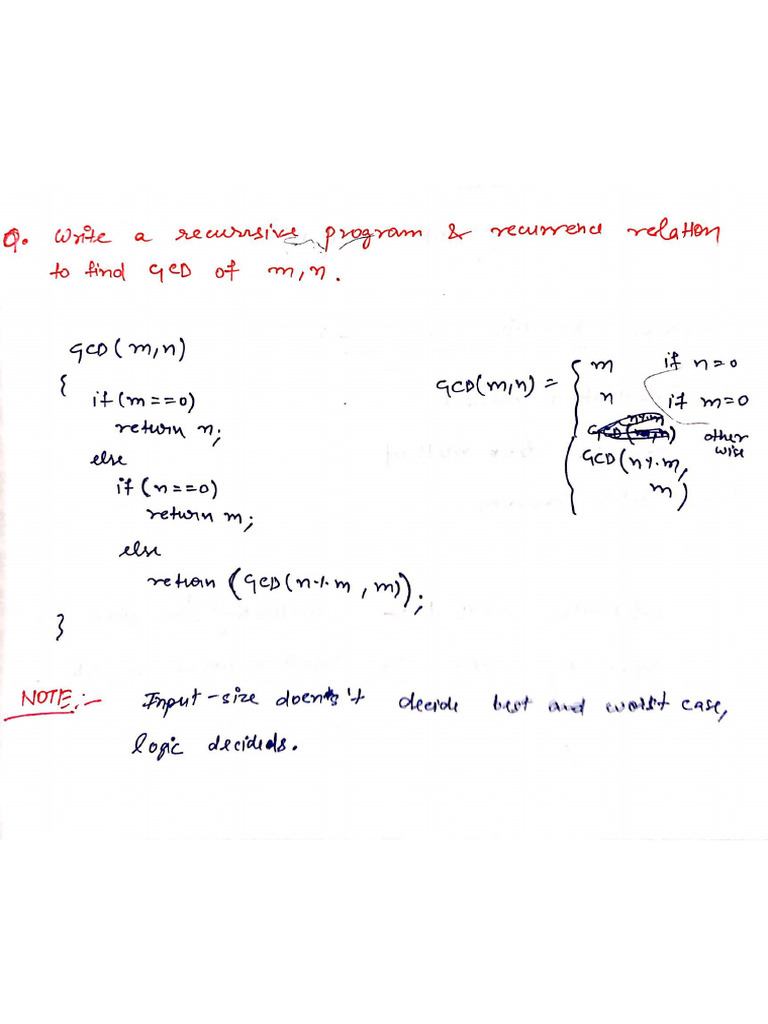 Q. Write a recursive program & recurrence relation
to find GCD of m,n.
GCD(m,n)
{
if(m==0)
return n;
else
if(n==0)
return m;
else
return (GCD(n%m, m));
}
GCD(m,n) = { m if n=0
n if m=0
GCD(n%m, other
m) wise
NOTE:- Input-size doen's't decide best and worst case,
logic decideds.